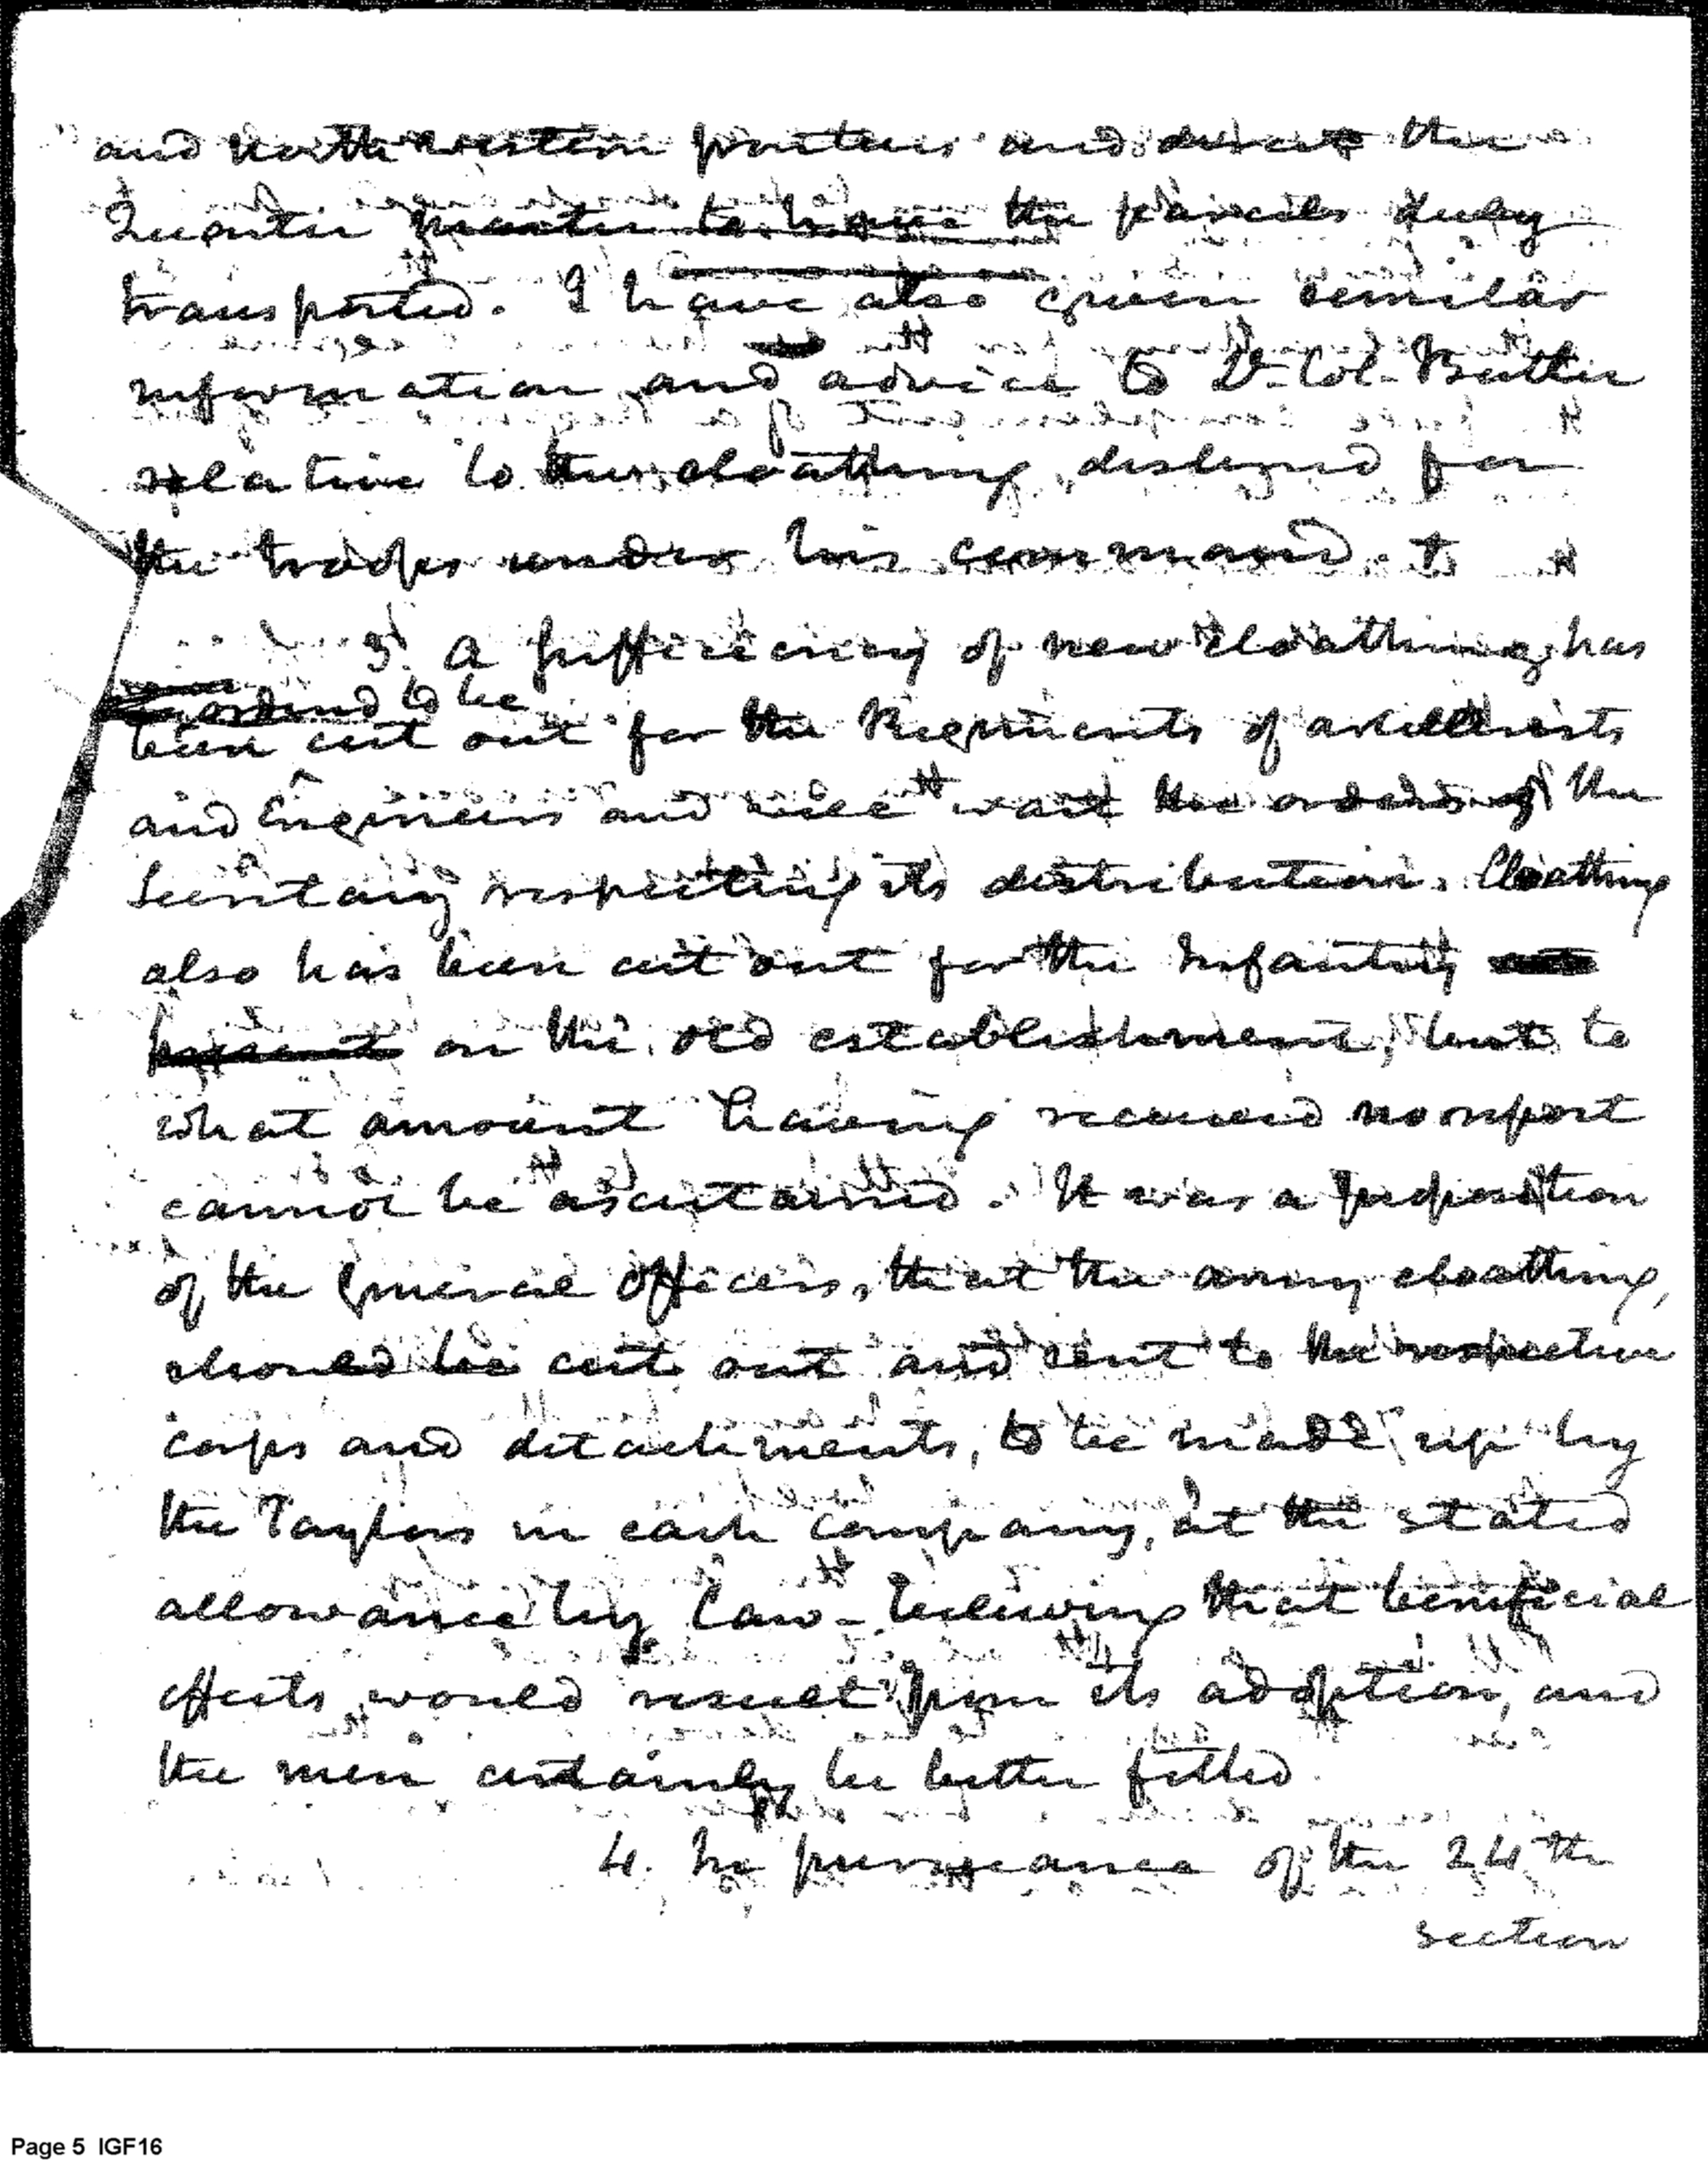 and North western frontiers and direct the
Quarter master to have the parcels duly
transported. I have also given similar
information and advice to Lt. Col. Butler
relative to the cloathing, designed for
the troops under his command.
3. A sufficiency of new cloathing has
ordered to be
been cut out for the Regiments of artillerists
and Engineers and will wait the orders of the
Secretary respecting its distribution. Cloathing
also has been cut out for the Infantry
present on the old establishment, but to
what amount having received no report
cannot be ascertained. It was a proposition
of the General Officers, that the army cloathing,
should be cut out and sent to the respective
corps and detachments, to be made up by
the Taylors in each company, at the stated
allowance by law - believing that beneficial
effects would result from its adoption, and
the men certainly be better fitted.
4. In pursuance of the 24th
section
Page 5 IGF16